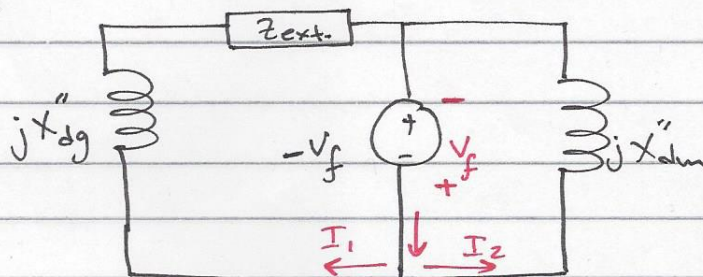 Zext.
jX"dg
+
-
-Vf
-
Vf
+
jX"dm
I1
I2